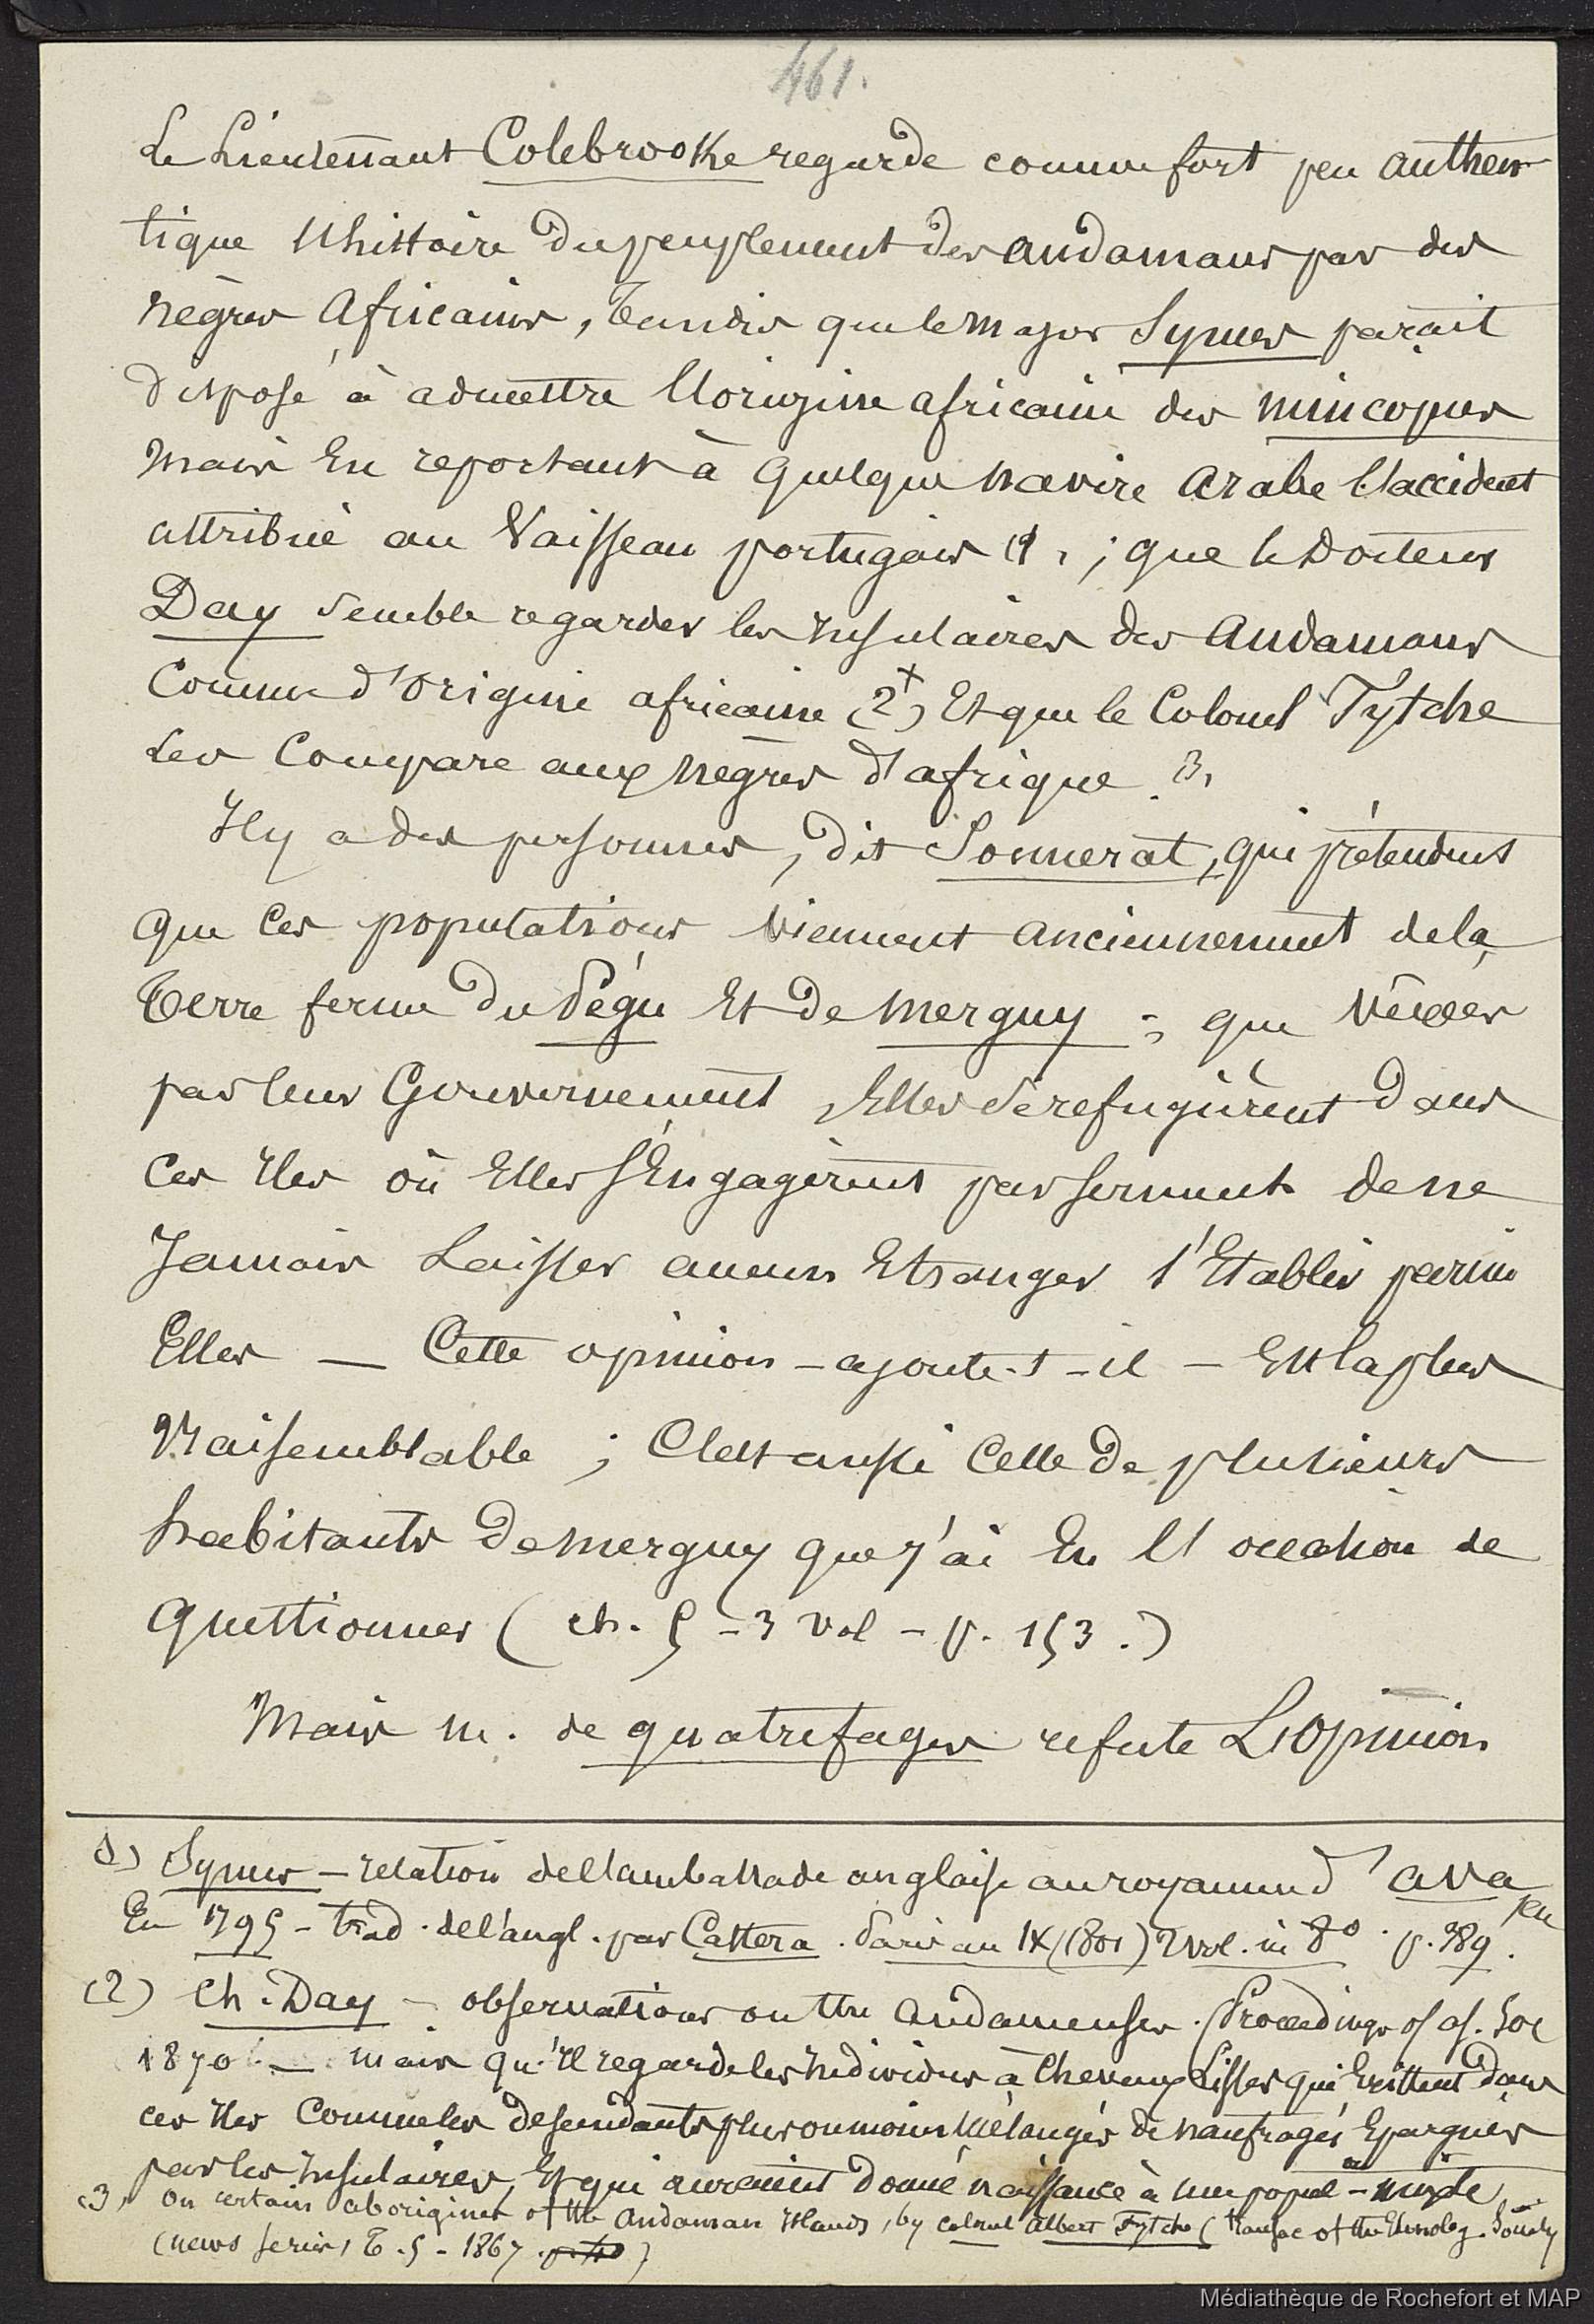 461.
Le Lieutenant Colebrooke regarde comme fort peu authen-
tique l'histoire du peuplement des Andamans par des
nègres Africains, tandis que le Major Symes paraît
disposé à admettre l'origine africaine des mincopies
mais En reportant à quelque navire Arabe l'accident
attribué au Vaisseau portugais (1) ; que le Docteur
Day semble regarder les Insulaires des Andamans
Comme d'Origine africaine (2) Et que le Colonel Tytche
les Compare aux nègres d'afrique (3)
Il y a des personnes, dit Sonnerat, qui prétendent
que Ces populations viennent anciennement de la
terre ferme du Pégu Et de Merguy ; que vexées
par leur Gouvernement, Elles se refugièrent dans
Ces Iles où Elles s'Engagèrent par serment de ne
Jamais Laisser aucun Etranger s'Etablir parmi
Elles — Cette opinion – ajoute-t-il – Est la plus
Vraisemblable ; C'est aussi Celle de plusieurs
habitants de Merguy que j'ai Eu l'occasion de
questionner ( ch. 5 – 3 vol – p. 153.)
Mais M. de quatrefages refute L'Opinion
1) Symes – relation de l'ambassade anglaise au royaume d'ava
En 1795 – trad. de l'angl. par Castera. Paris an IX (1801) 2 vol. in 8°. p. 389.
(2) Ch. Day – observations on the Andamenses. (Proceedings of as. Soc
1870 — mais qu'Il regarde les Individus à Cheveux Lisses qui Existent dans
ces Iles Comme les descendants plus ou moins mélangés de naufragés Epargnés
par les Insulaires, Et qui auraient donné naissance à une popul – mixte
(3) On certain aborigines of the Andaman Islands, by colonel Albert Fytche ( transac of the Ethnolog. Society
(news series, T. 5 – 1867 )
Médiathèque de Rochefort et MAP